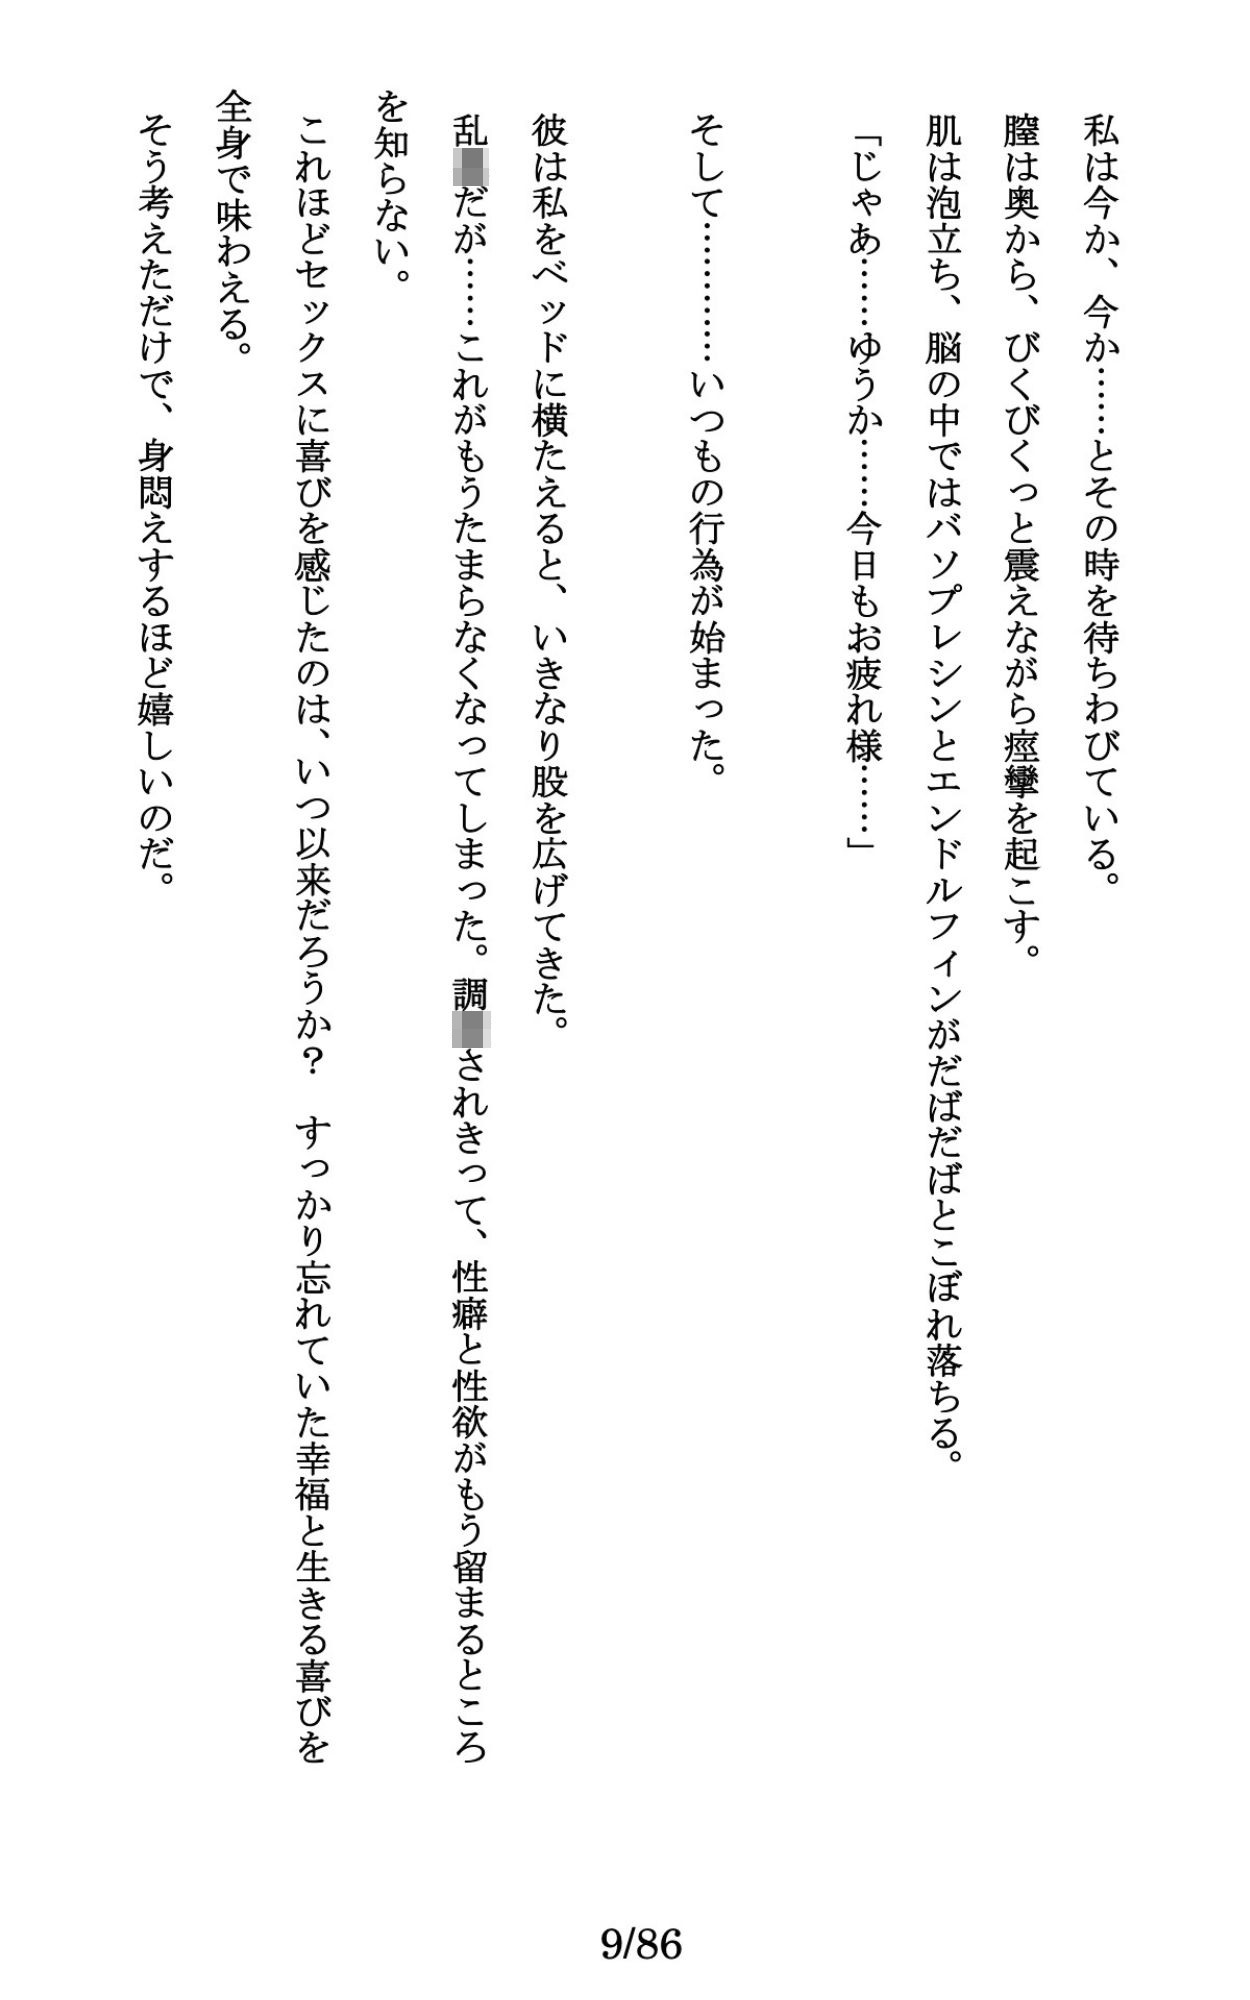 私は今か、今か……とその時を待ちわびている。
膣は奥から、びくびくっと震えながら痙攣を起こす。
肌は泡立ち、脳の中ではバソプレシンとエンドルフィンがだばだばとこぼれ落ちる。
「じゃあ……ゆうか……今日もお疲れ様……」
そして…………いつもの行為が始まった。
彼は私をベッドに横たえると、いきなり股を広げてきた。
乱だが……これがもうたまらなくなってしまった。調されきって、性癖と性欲がもう留まるところ
を知らない。
これほどセックスに喜びを感じたのは、いつ以来だろうか？　すっかり忘れていた幸福と生きる喜びを
全身で味わえる。
そう考えただけで、身悶えするほど嬉しいのだ。
9/86